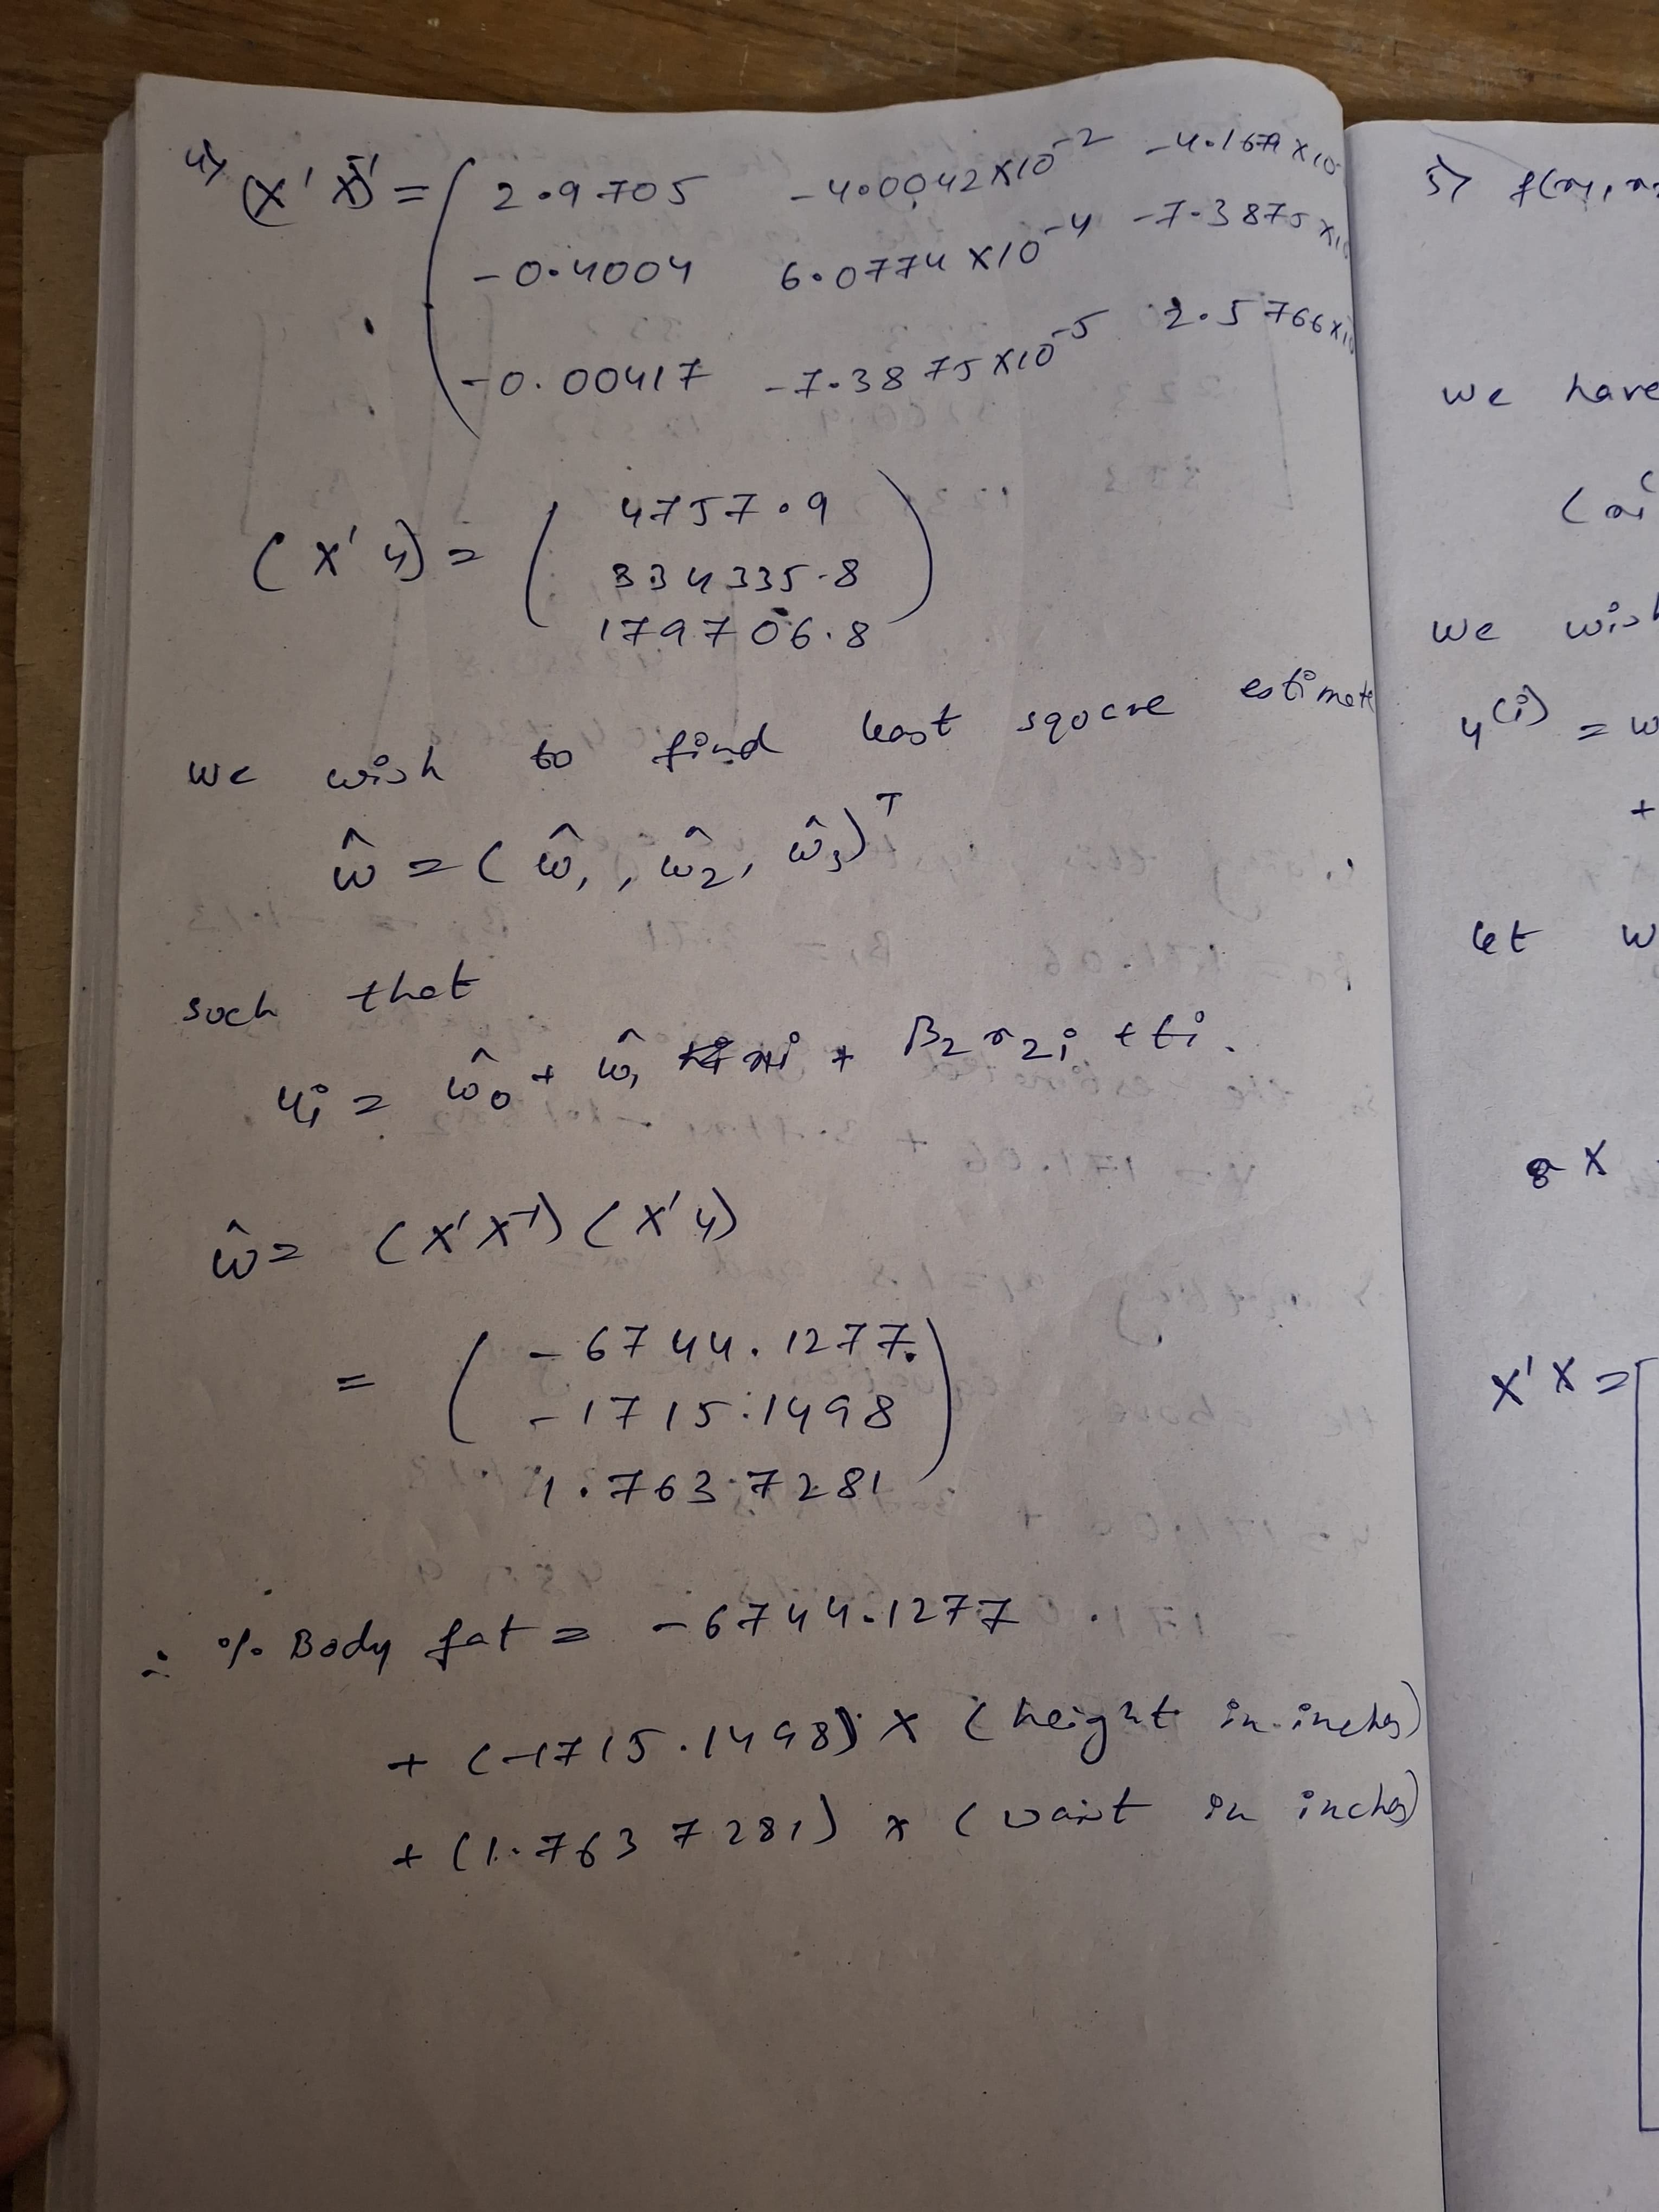 4) (X' X)⁻¹ = ( 2.9705 -4.0042×10⁻² -4.1679×10
-0.4004 6.0774×10⁻⁴ -7.3875×1
-0.00417 -7.3875×10⁻⁵ 2.5766×1
(X' y) = ( 4757.9
334335.8
179706.8 )
We wish to find least square estimate
ŵ = (ŵ₁, ŵ₂, ŵ₃)ᵀ
such that
yi = ŵ₀ + ŵ₁ xi + β₂ x₂i + ti.
ŵ = (X'X⁻¹) (X'y)
= ( -6744.1277
-1715.1498
1.7637281 )
∴ % Body fat = -6744.1277
+ (-1715.1498) × (height in inches)
+ (1.7637281) × (waist in inches)
5) f(x₁, x
we have
(xi
we wish
y⁽ⁱ⁾ = w
+
let w
X
X'X =